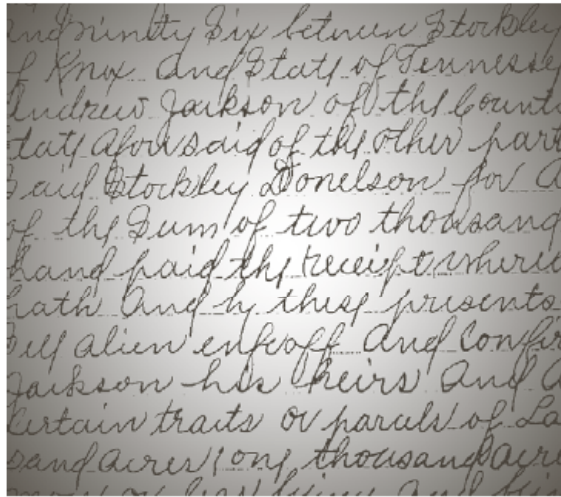 and ninety Six between Stockley
of Knox and State of Tennessee
Andrew Jackson of the Count
State aforesaid of the other part
Said Stockley Donelson for
of the Sum of two thousand
hand paid the receipt where
hath And by these presents
Sell alien enfeoff And Confir
Jackson his heirs And A
Certain tracts or parcels of La
sand acres, one thousand acre